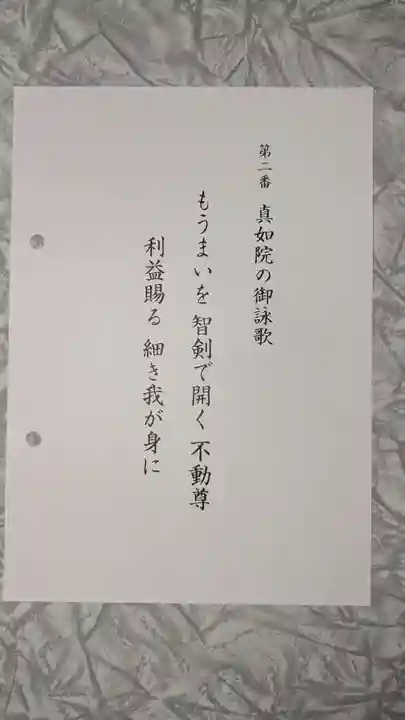 第二番 真如院の御詠歌
もうまいを 智剣で開く 不動尊
利益賜る 細き我が身に